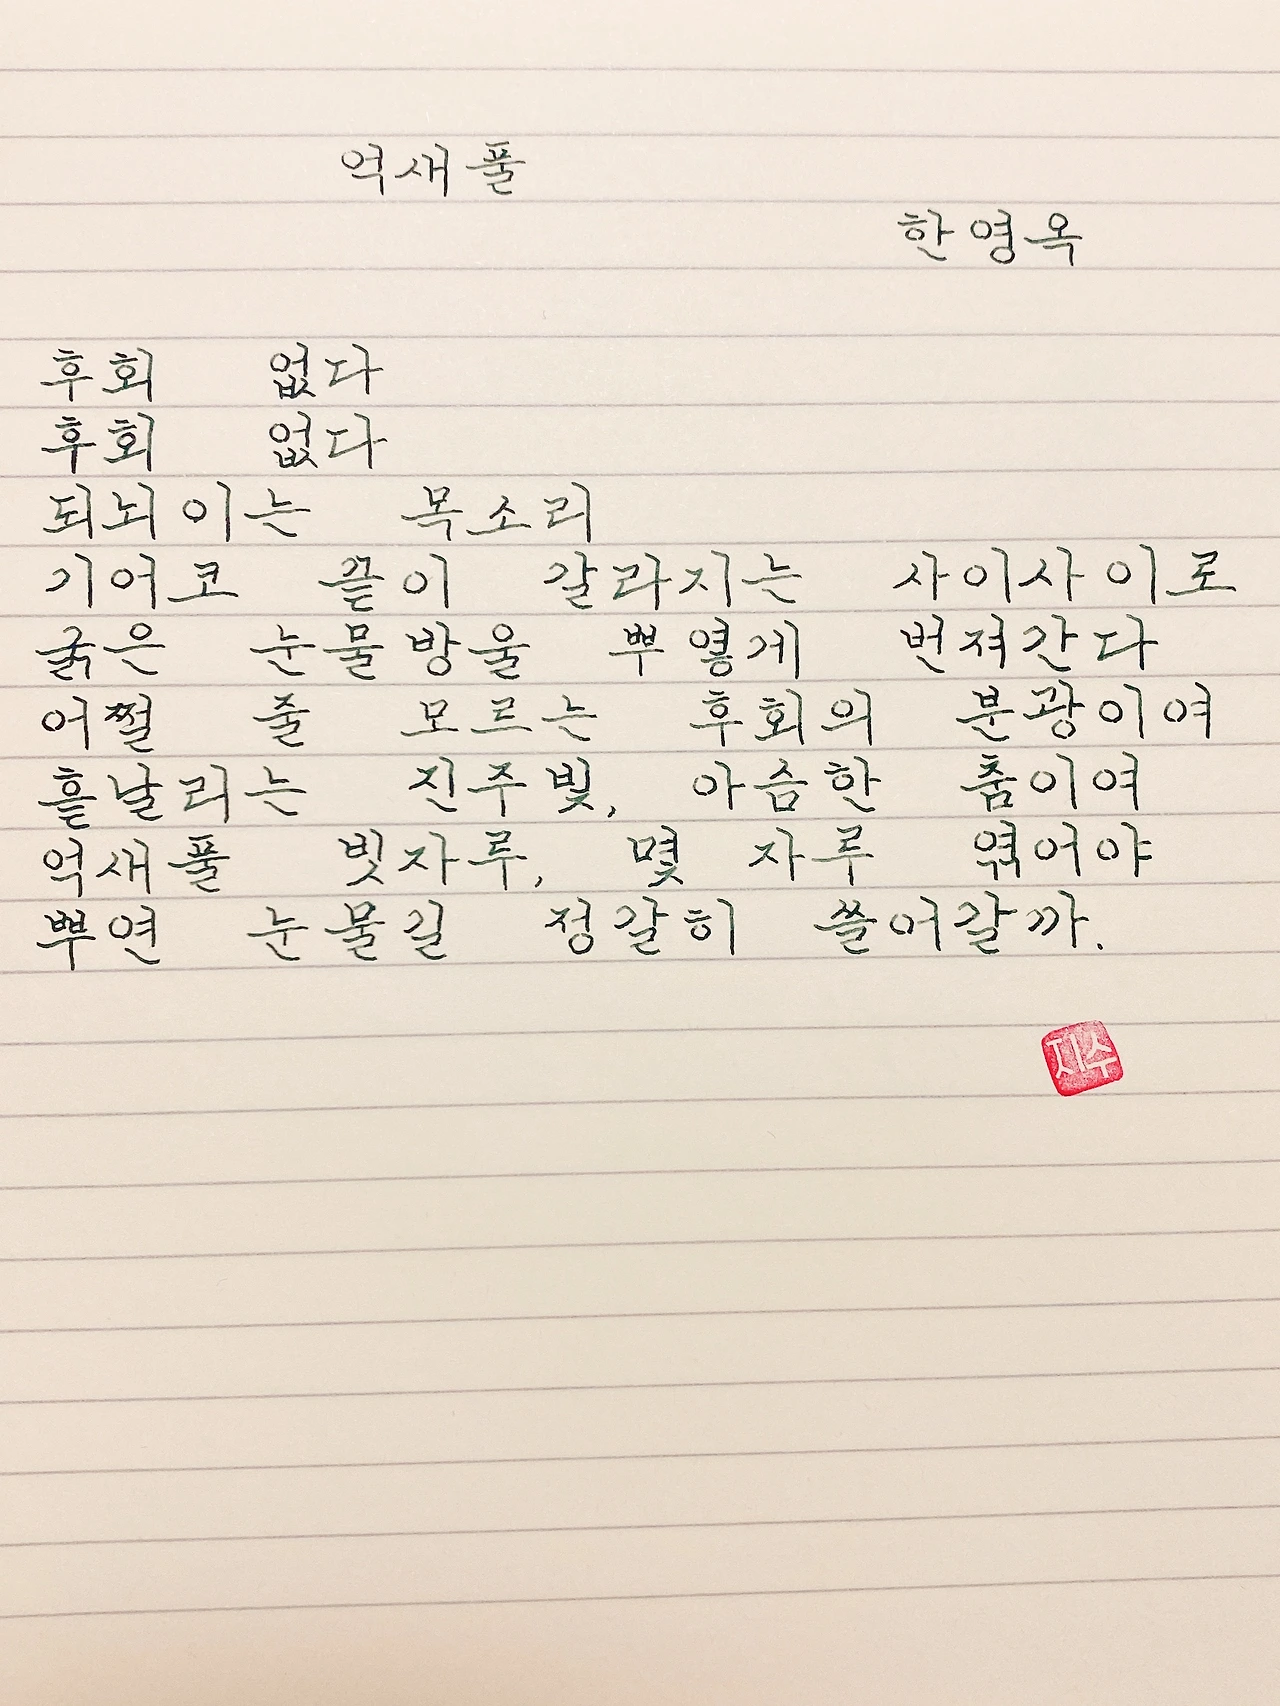 억새풀
한영옥
후회 없다
후회 없다
되뇌이는 목소리
기어코 끝이 갈라지는 사이사이로
굵은 눈물방울 뿌옇게 번져간다
어쩔 줄 모르는 후회의 분광이여
흩날리는 진주빛, 아슴한 춤이여
억새풀 빗자루, 몇 자루 엮어야
뿌연 눈물길 정갈히 쓸어갈까.
지수